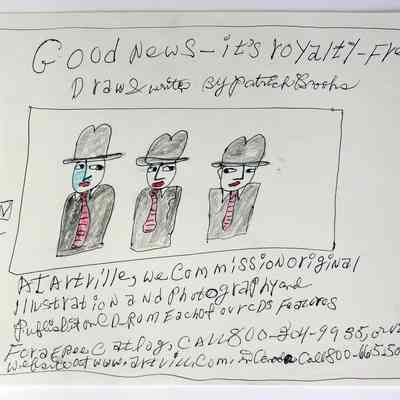 GOOD News-it's royalty-Fre
Draw& write By Patrick Brooks
AT Artville, we Commission original
Illustration and Photography and
Publish it on CD-ROM Each of our CDs Features
For a Free Catlog, CALL 800-
website at www.artvill.com. in Canada Call 800-665-50